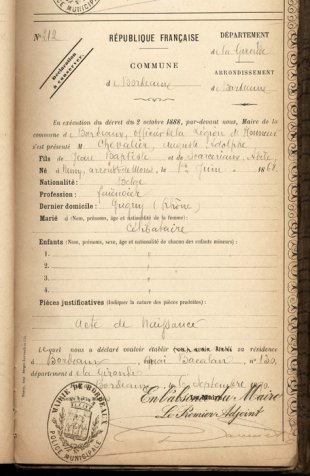 POLICE MUNICIPALE
N° 212
RÉPUBLIQUE FRANÇAISE
DÉPARTEMENT
de la Gironde
Déclaration
à conserver
COMMUNE
de Bordeaux
ARRONDISSEMENT
de Bordeaux
En exécution du décret du 2 octobre 1888, par-devant nous, Maire de la
commune d e Bordeaux, officier de la Légion d'Honneur
s'est présenté M Chevalier, Auguste Adolphe
Fils de Jean Baptiste et de
Né à arrondt de Mons, le 1er Juin 186
Nationalité : Belge
Profession :
Dernier domicile : (Rhône)
Marié à (Nom, prénoms, âge et nationalité de la femme) :
Célibataire
Enfants (Nom, prénoms, sexe, âge et nationalité de chacun des enfants mineurs) :
1.
2.
3.
4.
Pièces justificatives (Indiquer la nature des pièces produites) :
Acte de Naissance
Lequel nous a déclaré vouloir établir sa résidence
à Bordeaux, quai Bacalan n° 130,
département d e la Gironde
Bordeaux, le septembre 1890
En l'absence du Maire
Le Premier Adjoint
MAIRIE DE BORDEAUX
POLICE MUNICIPALE